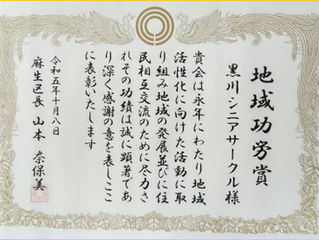 地域功労賞
黒川シニアサークル様
貴会は永年にわたり地域
活性化に向けた活動に取
り組み地域の発展並びに住
民相互交流のために尽力さ
れその功績は誠に顕著であ
り深く感謝の意を表しここ
に表彰いたします
令和五年十月八日
麻生区長 山本 奈保美